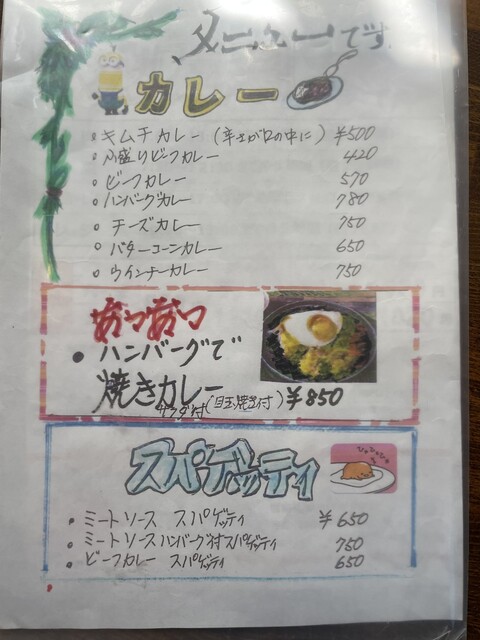 メニューです
カレー
キムチカレー (辛さが口の中に) ¥500
小盛りビーフカレー 420
ビーフカレー 570
ハンバーグカレー 780
チーズカレー 750
バターコーンカレー 650
ウインナーカレー 750
あつあつ
ハンバーグで
焼きカレー (目玉焼き付) ¥850
サラダ付
スパゲッティ
ミートソース スパゲッティ ¥650
ミートソースハンバーグ付スパゲッティ 750
ビーフカレー スパゲッティ 650